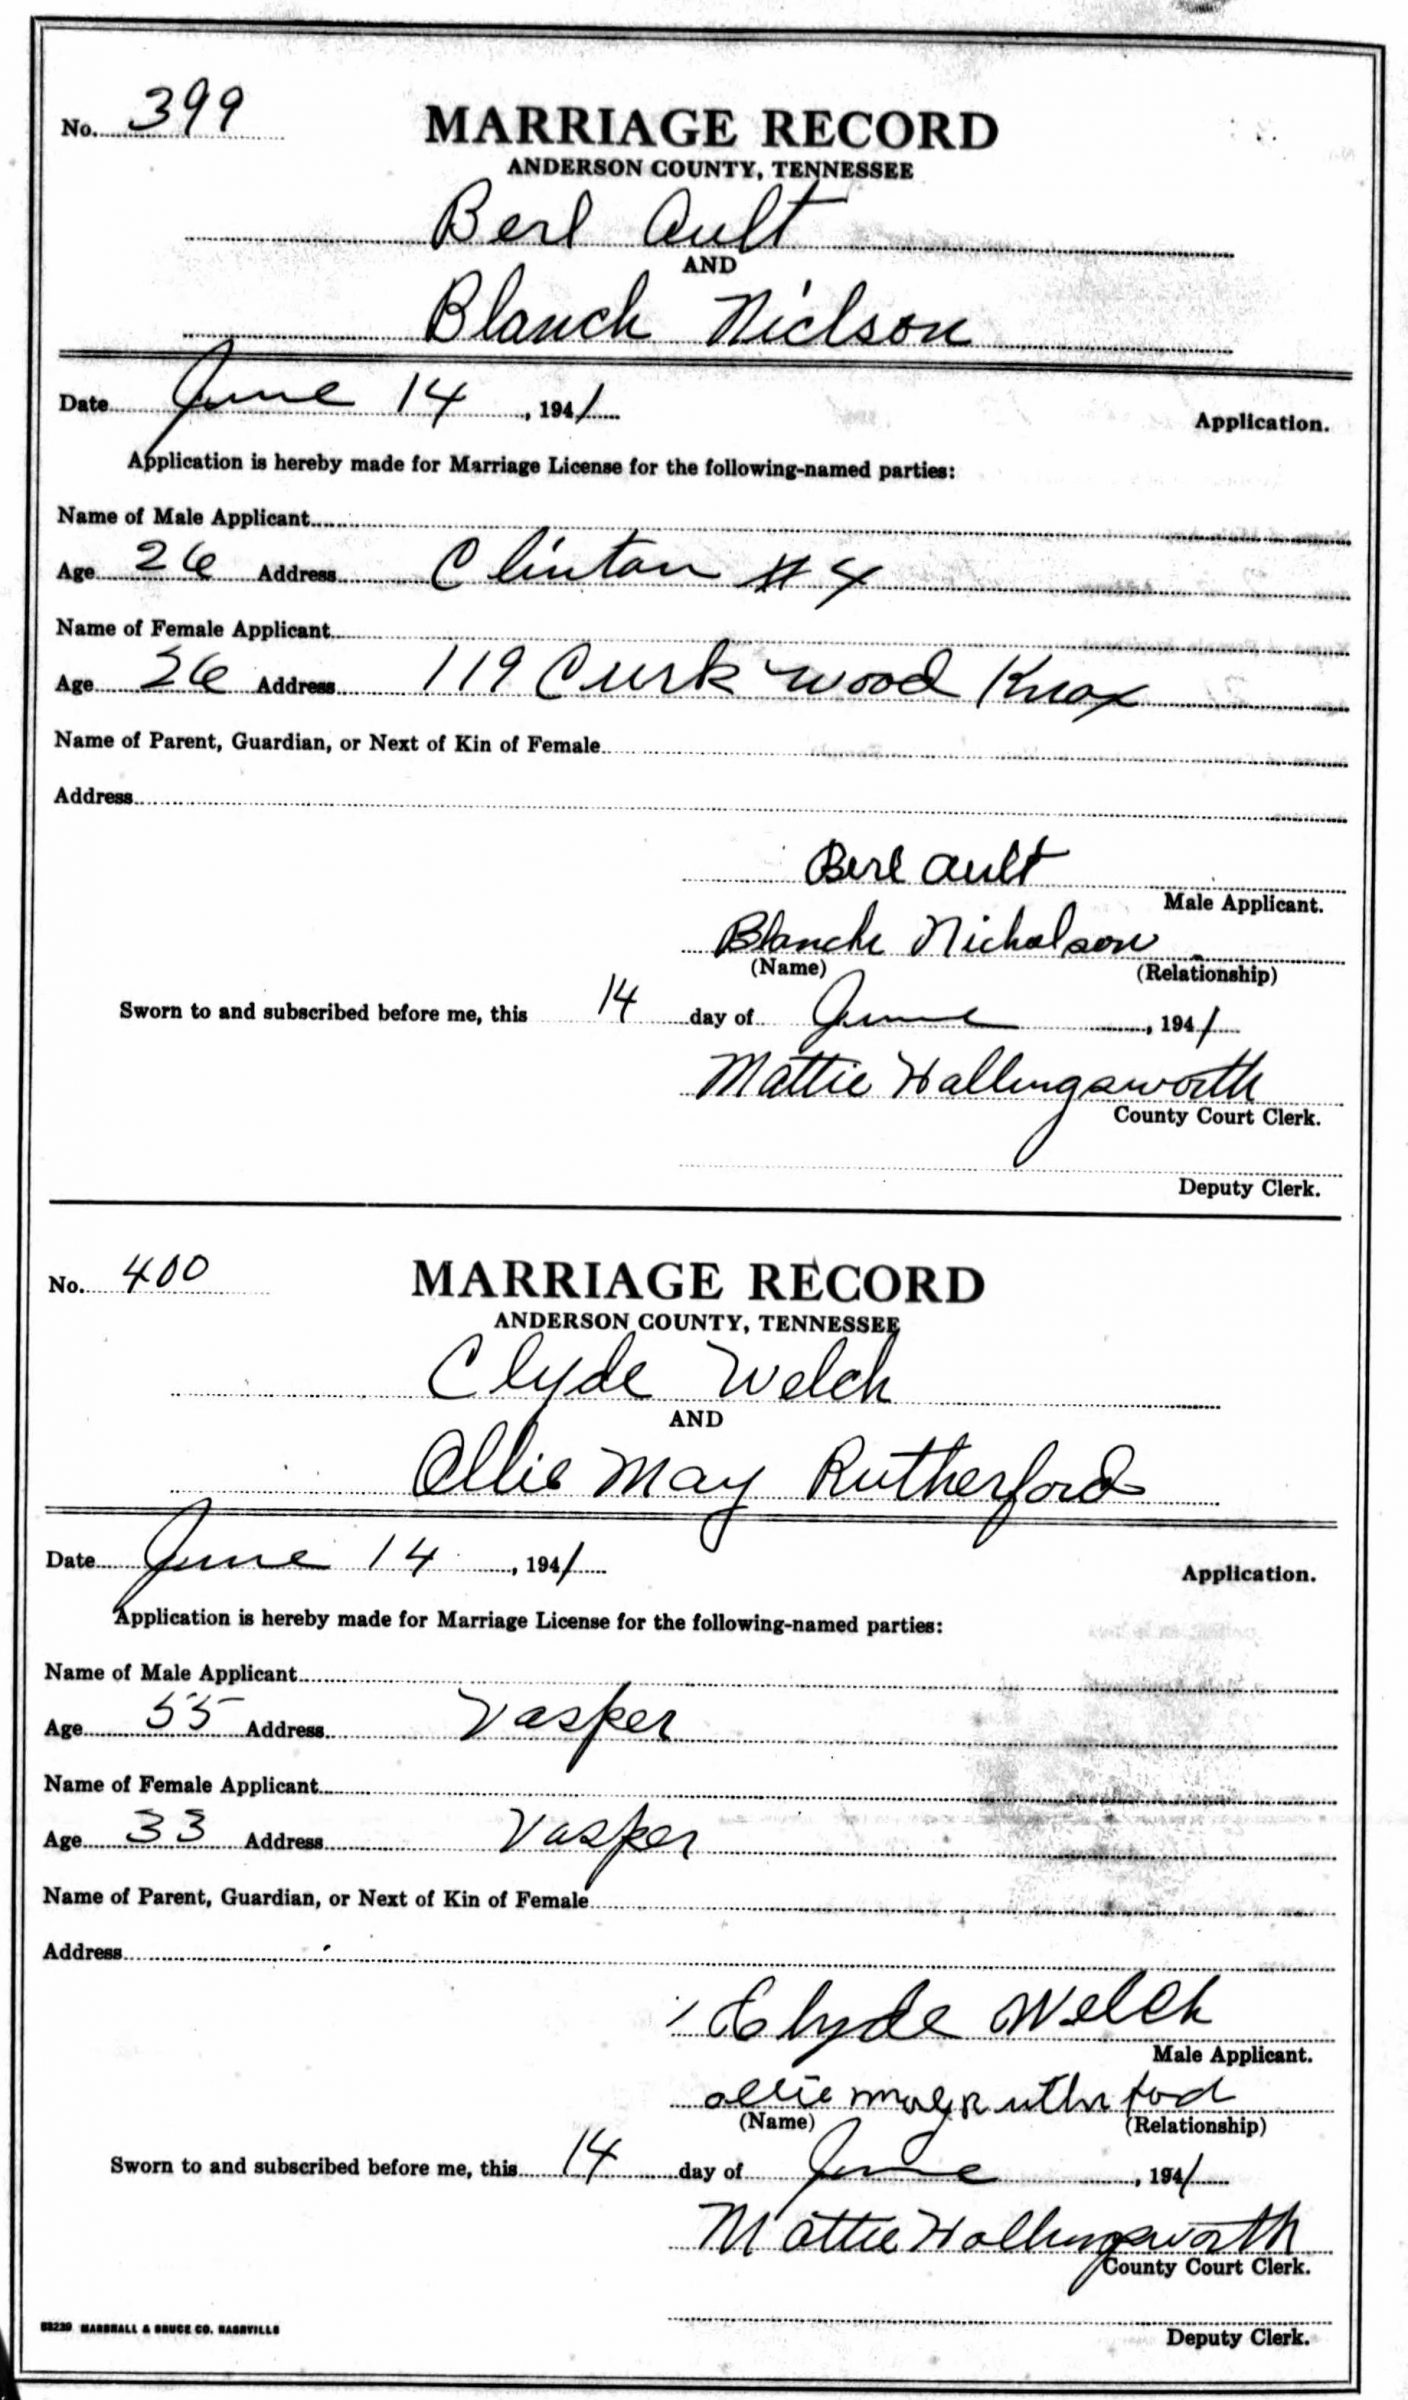 No. 399
MARRIAGE RECORD
ANDERSON COUNTY, TENNESSEE
Berl Ault
AND
Blanch Nielson
Date June 14, 1941
Application.
Application is hereby made for Marriage License for the following-named parties:
Name of Male Applicant
Age 26 Address Clinton #4
Name of Female Applicant
Age 26 Address 119 Curk wood Knox
Name of Parent, Guardian, or Next of Kin of Female
Address
Berl Ault
Male Applicant.
Blanche Nicholson
(Name) (Relationship)
Sworn to and subscribed before me, this 14 day of June, 1941
Mattie Hollingsworth
County Court Clerk.
Deputy Clerk.
No. 400
MARRIAGE RECORD
ANDERSON COUNTY, TENNESSEE
Clyde Welch
AND
Ollie May Rutherford
Date June 14, 1941
Application.
Application is hereby made for Marriage License for the following-named parties:
Name of Male Applicant
Age 55 Address Vasper
Name of Female Applicant
Age 33 Address Vasper
Name of Parent, Guardian, or Next of Kin of Female
Address
Clyde Welch
Male Applicant.
ollie may Ruthrfod
(Name) (Relationship)
Sworn to and subscribed before me, this 14 day of June, 1941
Mattie Hollingsworth
County Court Clerk.
Deputy Clerk.
MARSHALL & BRUCE CO. NASHVILLE